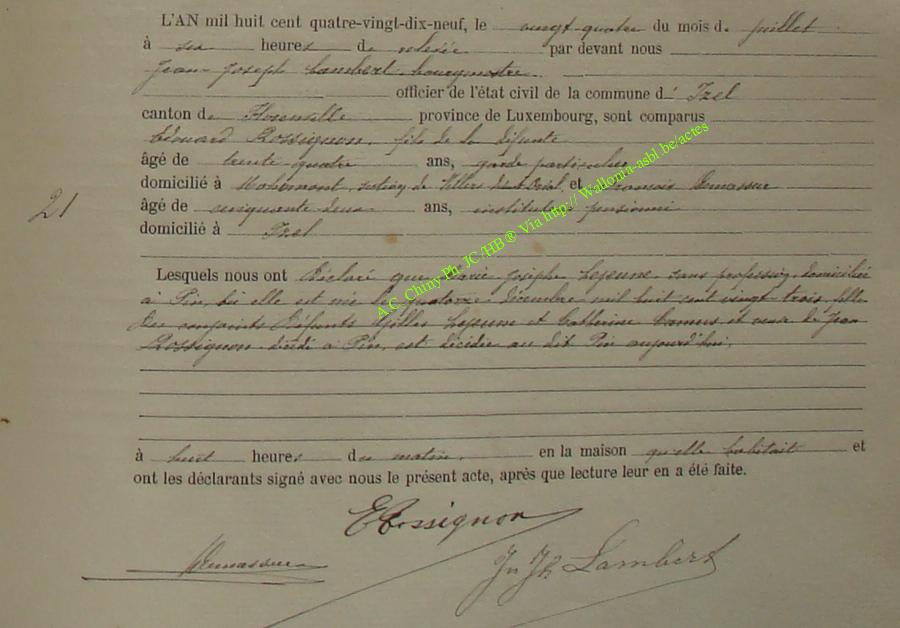 L'AN mil huit cent quatre-vingt-dix-neuf, le vingt-quatre du mois de juillet
à six heures de relevée par devant nous
Jean-Joseph Lambert bourgmestre
officier de l'état civil de la commune d' Izel
canton de Florenville province de Luxembourg, sont comparus
Edouard Rossignon, fils de la défunte
âgé de trente-quatre ans, garde particulier
domicilié à section de Villers devant Orval, et François Demasseur
âgé de cinquante-deux ans, instituteur pensionné
domicilié à Izel
21
Lesquels nous ont déclaré que Marie Josèphe Lejeune, sans profession, domiciliée
à Pin, où elle est née le quatorze décembre mil huit cent vingt-trois, fille
des conjoints défunts Gilles Lejeune et Catherine Camus, et veuve de Jean
Rossignon décédé à Pin, est décédée au dit Pin aujourd'hui,
à huit heures du matin, en la maison qu'elle habitait et
ont les déclarants signé avec nous le présent acte, après que lecture leur en a été faite.
ERossignon
Demasseur
Jn Jh Lambert
A.C. Chiny Ph. JC /HB ® Via http:// Wallonia-asbl.be/actes